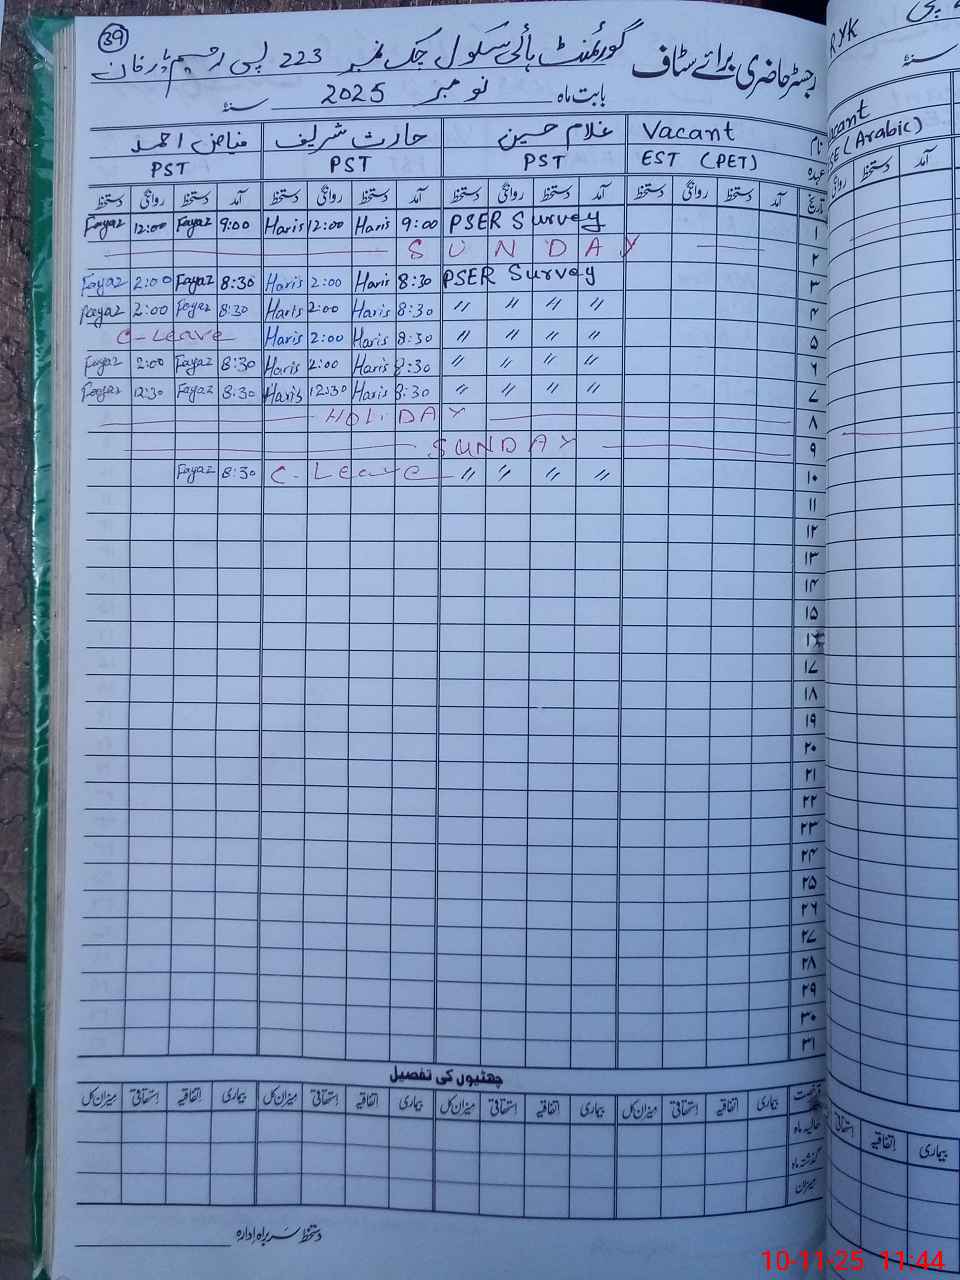 39
رجسٹر حاضری برائے سٹاف گورنمنٹ ہائی سکول چک نمبر 223 پی رحیم یار خان
بابت ماہ نومبر 2025 سنہ
نام Vacant غلام حسین حارث شریف فیاض احمد
عہدہ EST (PET) PST PST PST
تاریخ آمد دستخط روانگی دستخط آمد دستخط روانگی دستخط آمد دستخط روانگی دستخط آمد دستخط روانگی دستخط
Fayaz 12:00 Fayaz 9:00 Haris 12:00 Haris 9:00 PSER Survey ۱
SUNDAY ۲
Fayaz 2:00 Fayaz 8:30 Haris 2:00 Haris 8:30 PSER Survey ۳
Fayaz 2:00 Fayaz 8:30 Haris 2:00 Haris 8:30 〃 〃 〃 〃 ۴
C-Leave Haris 2:00 Haris 8:30 〃 〃 〃 〃 ۵
Fayaz 2:00 Fayaz 8:30 Haris 2:00 Haris 8:30 〃 〃 〃 〃 ۶
Fayaz 12:30 Fayaz 8:30 Haris 12:30 Haris 8:30 〃 〃 〃 〃 ۷
HOLIDAY ۸
SUNDAY ۹
Fayaz 8:30 C-Leave 〃 〃 〃 〃 ۱۰
۱۱
۱۲
۱۳
۱۴
۱۵
۱۶
۱۷
۱۸
۱۹
۲۰
۲۱
۲۲
۲۳
۲۴
۲۵
۲۶
۲۷
۲۸
۲۹
۳۰
۳۱
چھٹیوں کی تفصیل
رخصت بیماری اتفاقیہ استحقاقی میزان کل بیماری اتفاقیہ استحقاقی میزان کل بیماری اتفاقیہ استحقاقی میزان کل بیماری اتفاقیہ استحقاقی میزان کل
حالیہ ماہ
گذشتہ ماہ
میزان
دستخط سربراہ ادارہ
RYK
سنہ
Vacant
SE (Arabic)
آمد دستخط روانگی
بیماری اتفاقیہ استحقاقی
10-11-25 11:44